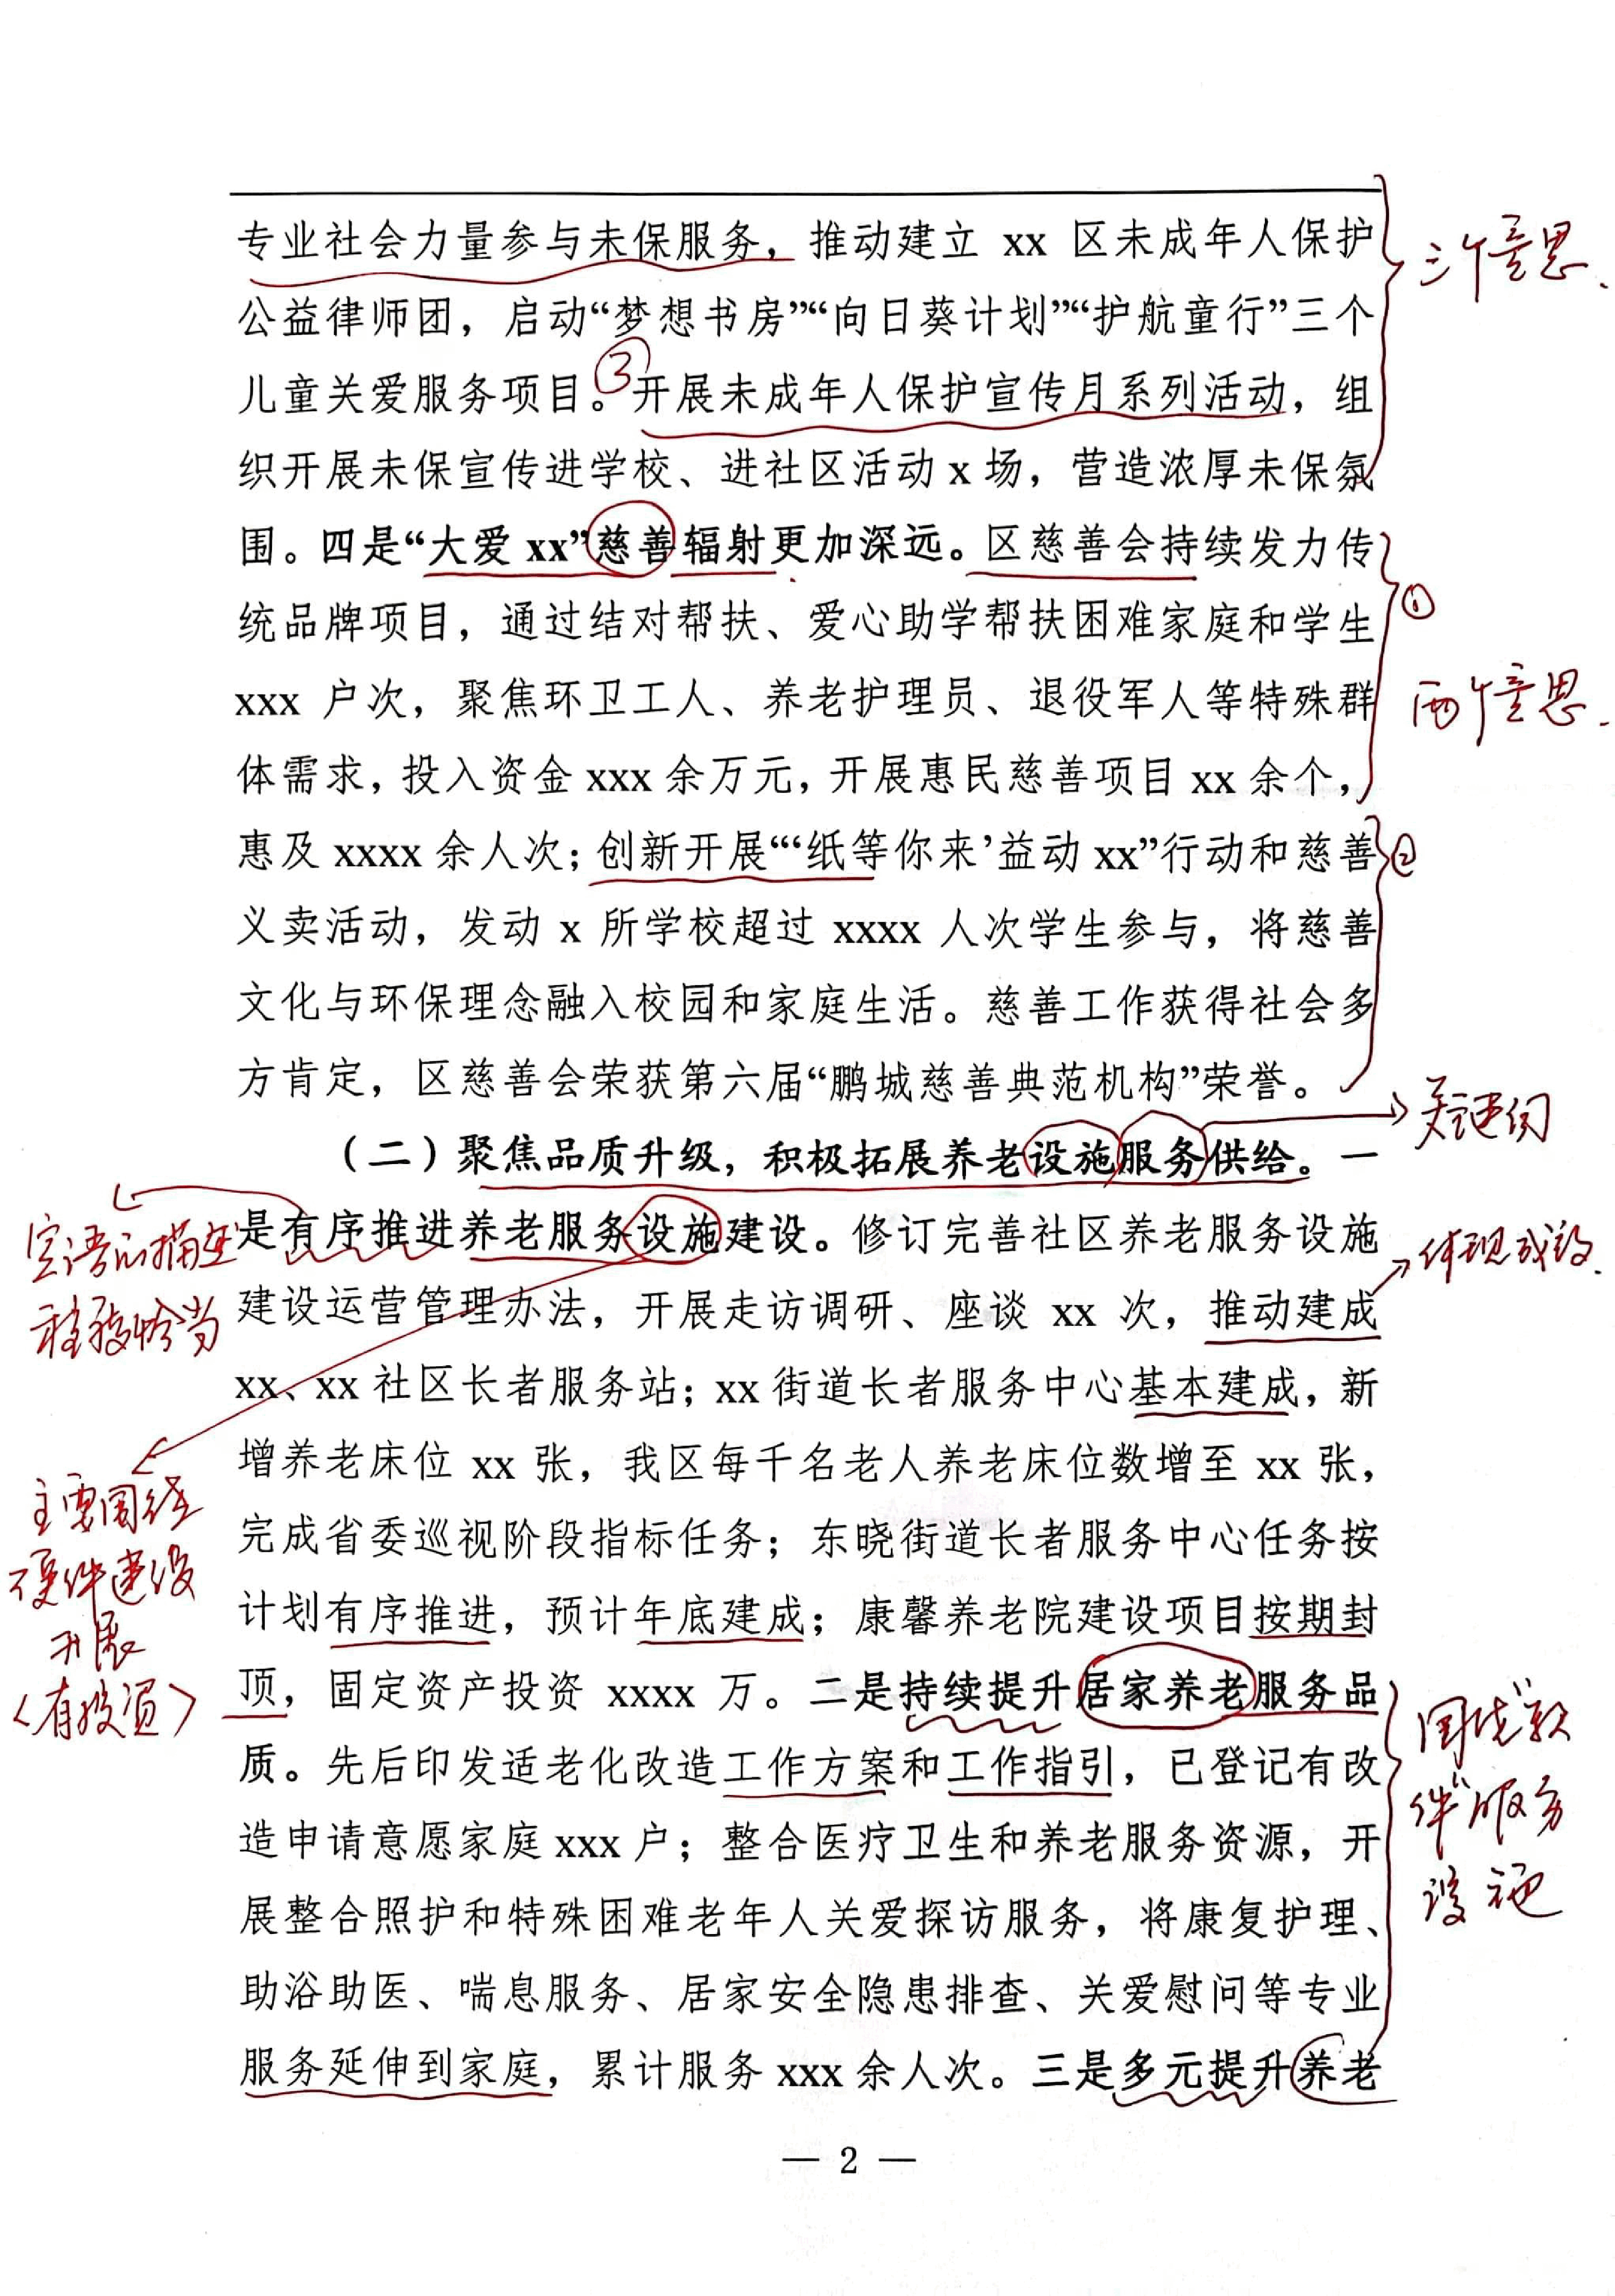 专业社会力量参与未保服务，推动建立 xx 区未成年人保护
公益律师团，启动“梦想书房”“向日葵计划”“护航童行”三个
儿童关爱服务项目。③开展未成年人保护宣传月系列活动，组
织开展未保宣传进学校、进社区活动 x 场，营造浓厚未保氛
围。四是“大爱 xx”慈善辐射更加深远。区慈善会持续发力传
统品牌项目，通过结对帮扶、爱心助学帮扶困难家庭和学生
xxx 户次，聚焦环卫工人、养老护理员、退役军人等特殊群
体需求，投入资金 xxx 余万元，开展惠民慈善项目 xx 余个，
惠及 xxxx 余人次；创新开展“‘纸等你来’益动 xx”行动和慈善
义卖活动，发动 x 所学校超过 xxxx 人次学生参与，将慈善
文化与环保理念融入校园和家庭生活。慈善工作获得社会多
方肯定，区慈善会荣获第六届“鹏城慈善典范机构”荣誉。
（二）聚焦品质升级，积极拓展养老设施服务供给。一
是有序推进养老服务设施建设。修订完善社区养老服务设施
建设运营管理办法，开展走访调研、座谈 xx 次，推动建成
xx、xx 社区长者服务站；xx 街道长者服务中心基本建成，新
增养老床位 xx 张，我区每千名老人养老床位数增至 xx 张，
完成省委巡视阶段指标任务；东晓街道长者服务中心任务按
计划有序推进，预计年底建成；康馨养老院建设项目按期封
顶，固定资产投资 xxxx 万。二是持续提升居家养老服务品
质。先后印发适老化改造工作方案和工作指引，已登记有改
造申请意愿家庭 xxx 户；整合医疗卫生和养老服务资源，开
展整合照护和特殊困难老年人关爱探访服务，将康复护理、
助浴助医、喘息服务、居家安全隐患排查、关爱慰问等专业
服务延伸到家庭，累计服务 xxx 余人次。三是多元提升养老
— 2 —
三个意思.
①
两个意思.
②
关键词
体现成效.
定语的描述
程度恰当
主要围绕
硬件建设
开展
〈有投资〉
围绕“软
件”服务
设施